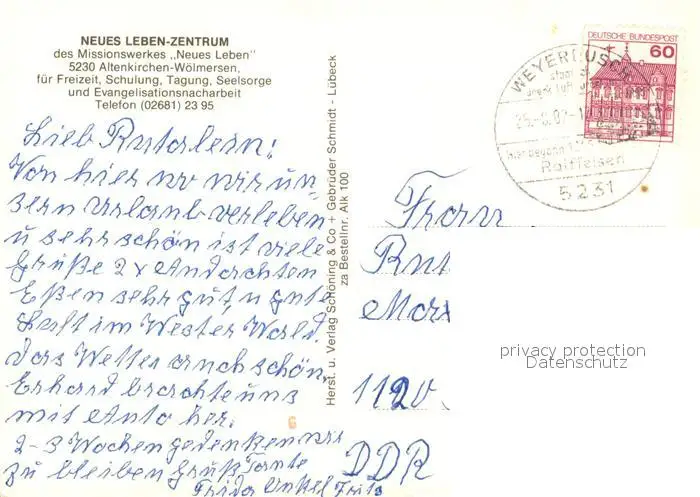 NEUES LEBEN-ZENTRUM
des Missionswerkes „Neues Leben"
5230 Altenkirchen-Wölmersen,
für Freizeit, Schulung, Tagung, Seelsorge
und Evangelisationsnacharbeit
Telefon (02681) 23 95
Lieb Rutalein!
Von hier wo wir un-
sern Urlaub verleben
u sehr schön ist viele
Grüße 2 x Andachten
Eßen sehr gut, u gute
Luft im Wester Wald.
das Wetter auch schön,
Erhard brachte uns
mit Auto her.
2-3 Wochen gedenken wir
zu bleiben Gruß Tante
Frida Onkel Fritz
Herst. u. Verlag Schöning & Co + Gebrüder Schmidt - Lübeck
za Bestellnr. Alk 100
DEUTSCHE BUNDESPOST
60
WEYERBUSCH
Raiffeisen
5231
Frau
Rut
Max
1120
DDR
privacy protection
Datenschutz